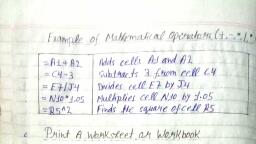 Example of Mathematical Operators (+, -, *, /, ^
=A1+A2 Adds cells A1 and A2
=C4-3 Subtracts 3 from cell C4
=E7/J4 Divides cell E7 by J4
=N10*1.05 Multiplies cell N10 by 1.05
=R5^2 Finds the square of cell R5
Print A worksheet or Workbook